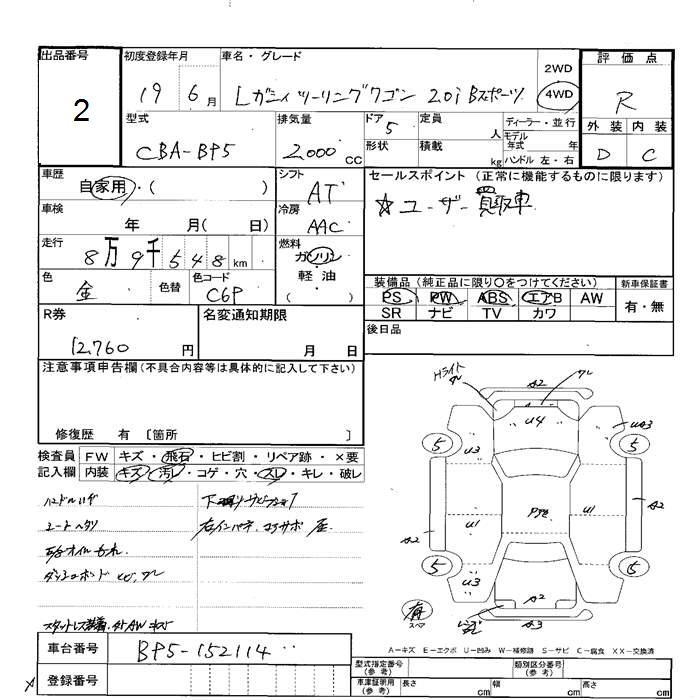 出品番号 初度登録年月 車名・グレード 評価点
2 19 6月 Lガシィ ツーリングワゴン 2.0i Bスポーツ 2WD 4WD R
型式 排気量 ドア 5 定員 人 ディーラー・並行 外装 内装
CBA-BP5 2000 cc 形状 積載 kg モデル年式 年 ハンドル 左・右 D C
車歴 自家用・( ) シフト AT セールスポイント (正常に機能するものに限ります)
☆ユーザー買取車
車検 年 月( 日) 冷房 AAC
走行 8万9千548 km 燃料 ガソリン・軽油 ( )
色 金 色替 色コード C6P 装備品 (純正品に限り○をつけてください) 新車保証書
PS PW ABS エアB AW 有・無
SR ナビ TV カワ
R券 12,760 円 名変通知期限 月 日 後日品
注意事項申告欄(不具合内容等は具体的に記入して下さい)
修復歴 有 〔箇所 〕
検査員 FW キズ・飛石・ヒビ割・リペア跡・×要
記入欄 内装 キズ・汚レ・コゲ・穴・スレ・キレ・破レ
ハンドルハゲ
シートヘタリ
ダッシュボード
Hライト A2
U4 UA3
5 U3 5
A2 U1 U1 A2
5 5
U3 A2
スペア A3
A-キズ E-エクボ U-凹み W-補修跡 S-サビ C-腐食 XX-交換済
車台番号 BP5-152114
登録番号
型式指定番号(参考) 類別区分番号(参考)
車庫証明用(参考) 長さ cm 幅 cm 高さ cm